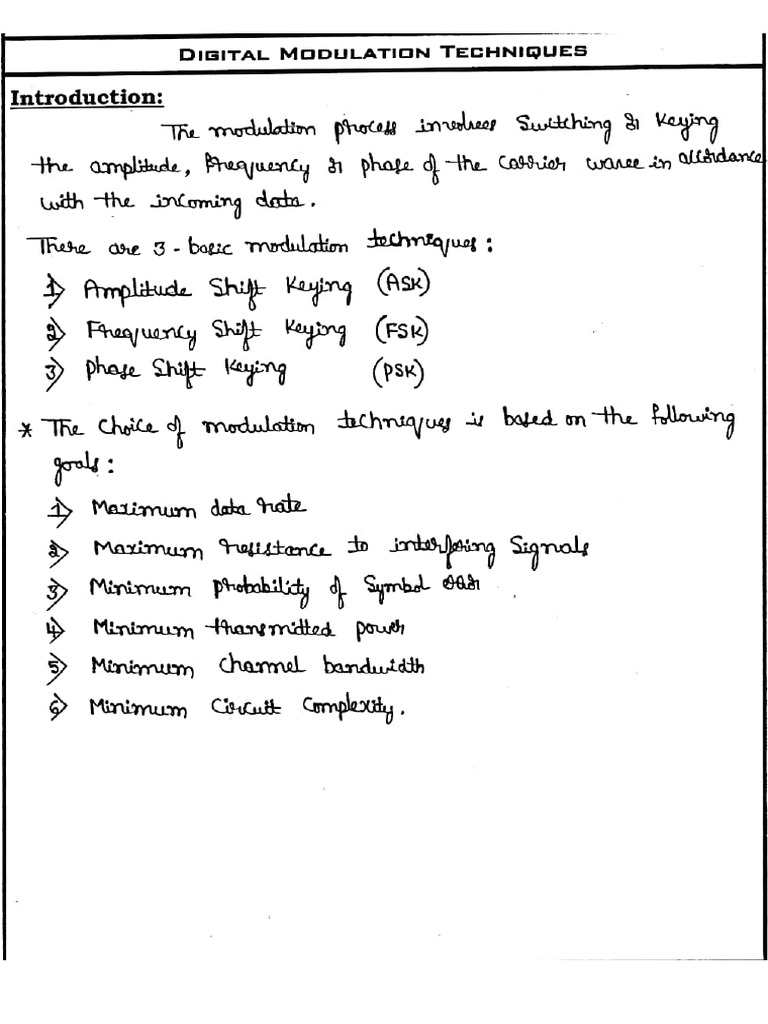 DIGITAL MODULATION TECHNIQUES
Introduction:
The modulation process involves Switching or Keying
the amplitude, frequency or phase of the carrier wave in accordance
with the incoming data.
There are 3 - basic modulation techniques :
1) Amplitude Shift Keying (ASK)
2) Frequency Shift Keying (FSK)
3) Phase Shift Keying (PSK)
* The choice of modulation techniques is based on the following
goals :
1) Maximum data rate
2) Maximum resistance to interfering Signals
3) Minimum probability of Symbol error
4) Minimum transmitted power
5) Minimum channel bandwidth
6) Minimum Circuit Complexity.